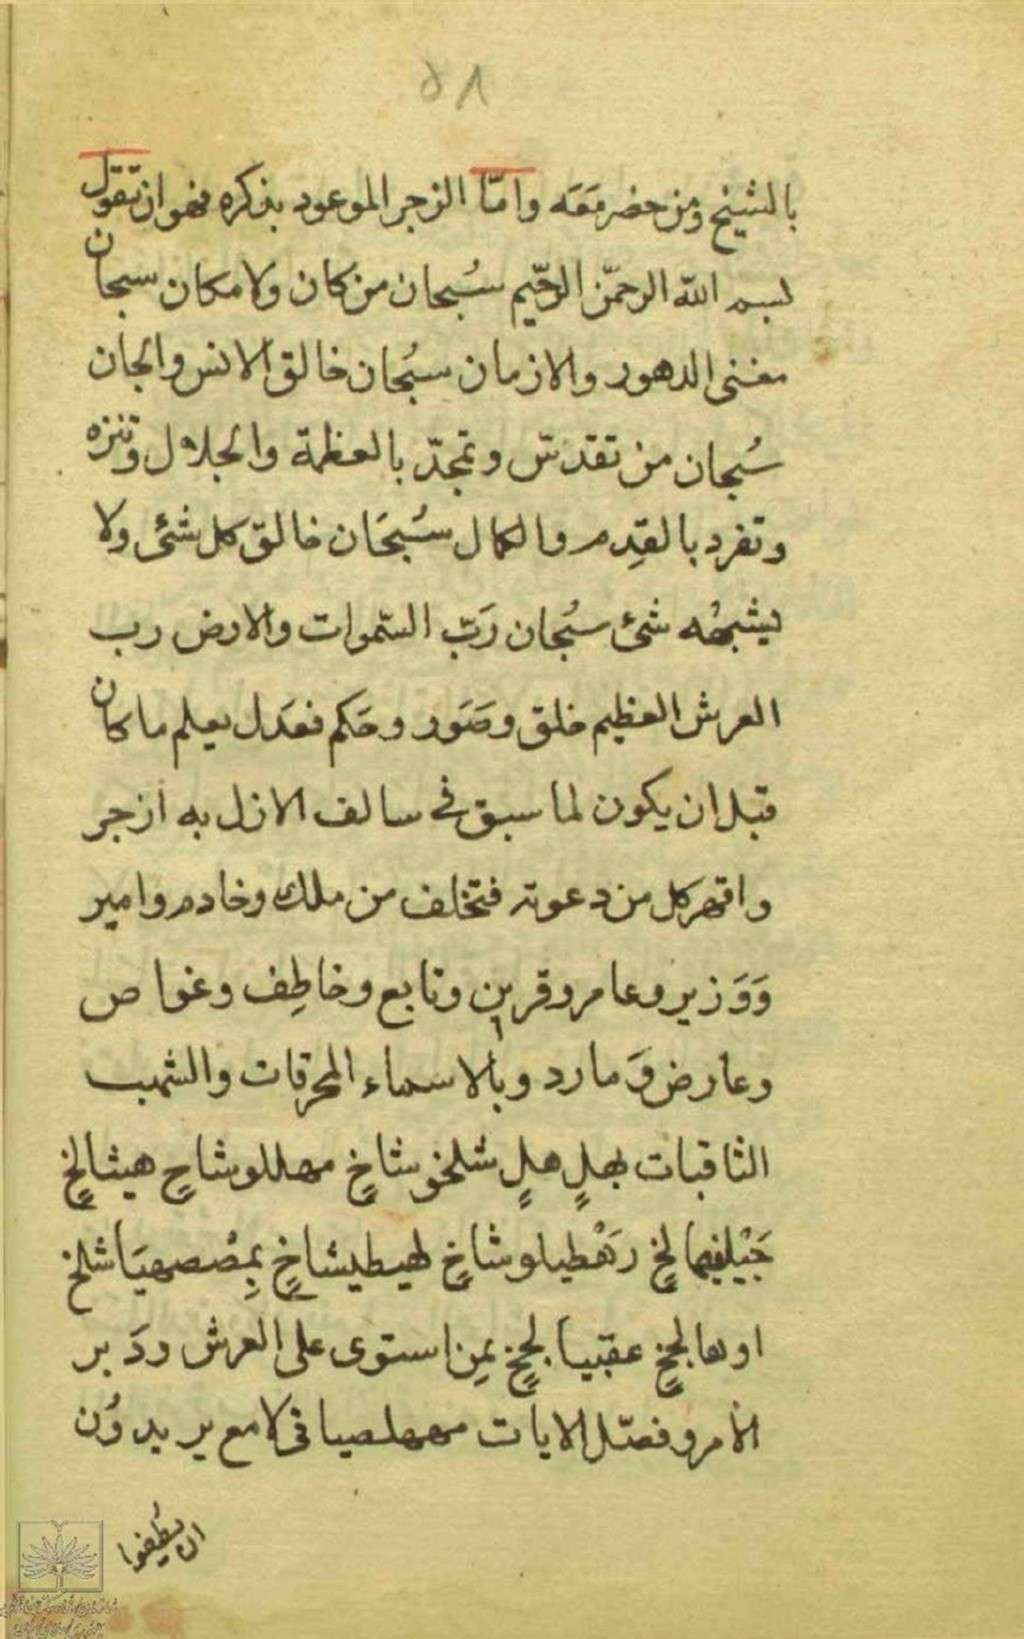 ٥٨
بالشيخ ومن حضر مَعَه وامّا الزجر الموعود بذكره فهو ان تقول
بسم الله الرحمٰن الرحيم سُبحان من كان ولا مكان سبحان
مفنى الدهور والازمان سبُحان خالق الانس والجان
سُبحان من تقدس وتمجدّ بالعظمة والجلال وتنزه
وتفرد بالقِدم والكمال سُبحَان خالق كل شئ ولا
يشبهُه شئ سبُحان رَبّ السّموات والارض رب
العرش العظيم خلق وصَوَر وحَكم فعَدَل يعلم ما كان
قبل ان يكون لما سبق فى سالف الازل به ازجر
واقهر كل من دعوته فتخلف من ملك وخادم وامير
وَوَزير وعامر وقرين وتابع وخاطِف وغواص
وعارض وَمارد وبالاسماء المحرقات والشهب
الثاقبات بهلٍ هلٍ شلخوشاخٍ مهللوشاحٍ هيشالخٍ
رَهْطيلوشاخٍ لهيطيشاخٍ
اوهالجخٍ عقبيالجخٍ بمِن استوى على العرش ودَبر
الأمر وفصّل الايات يريدوُن
ان يُطيفوا